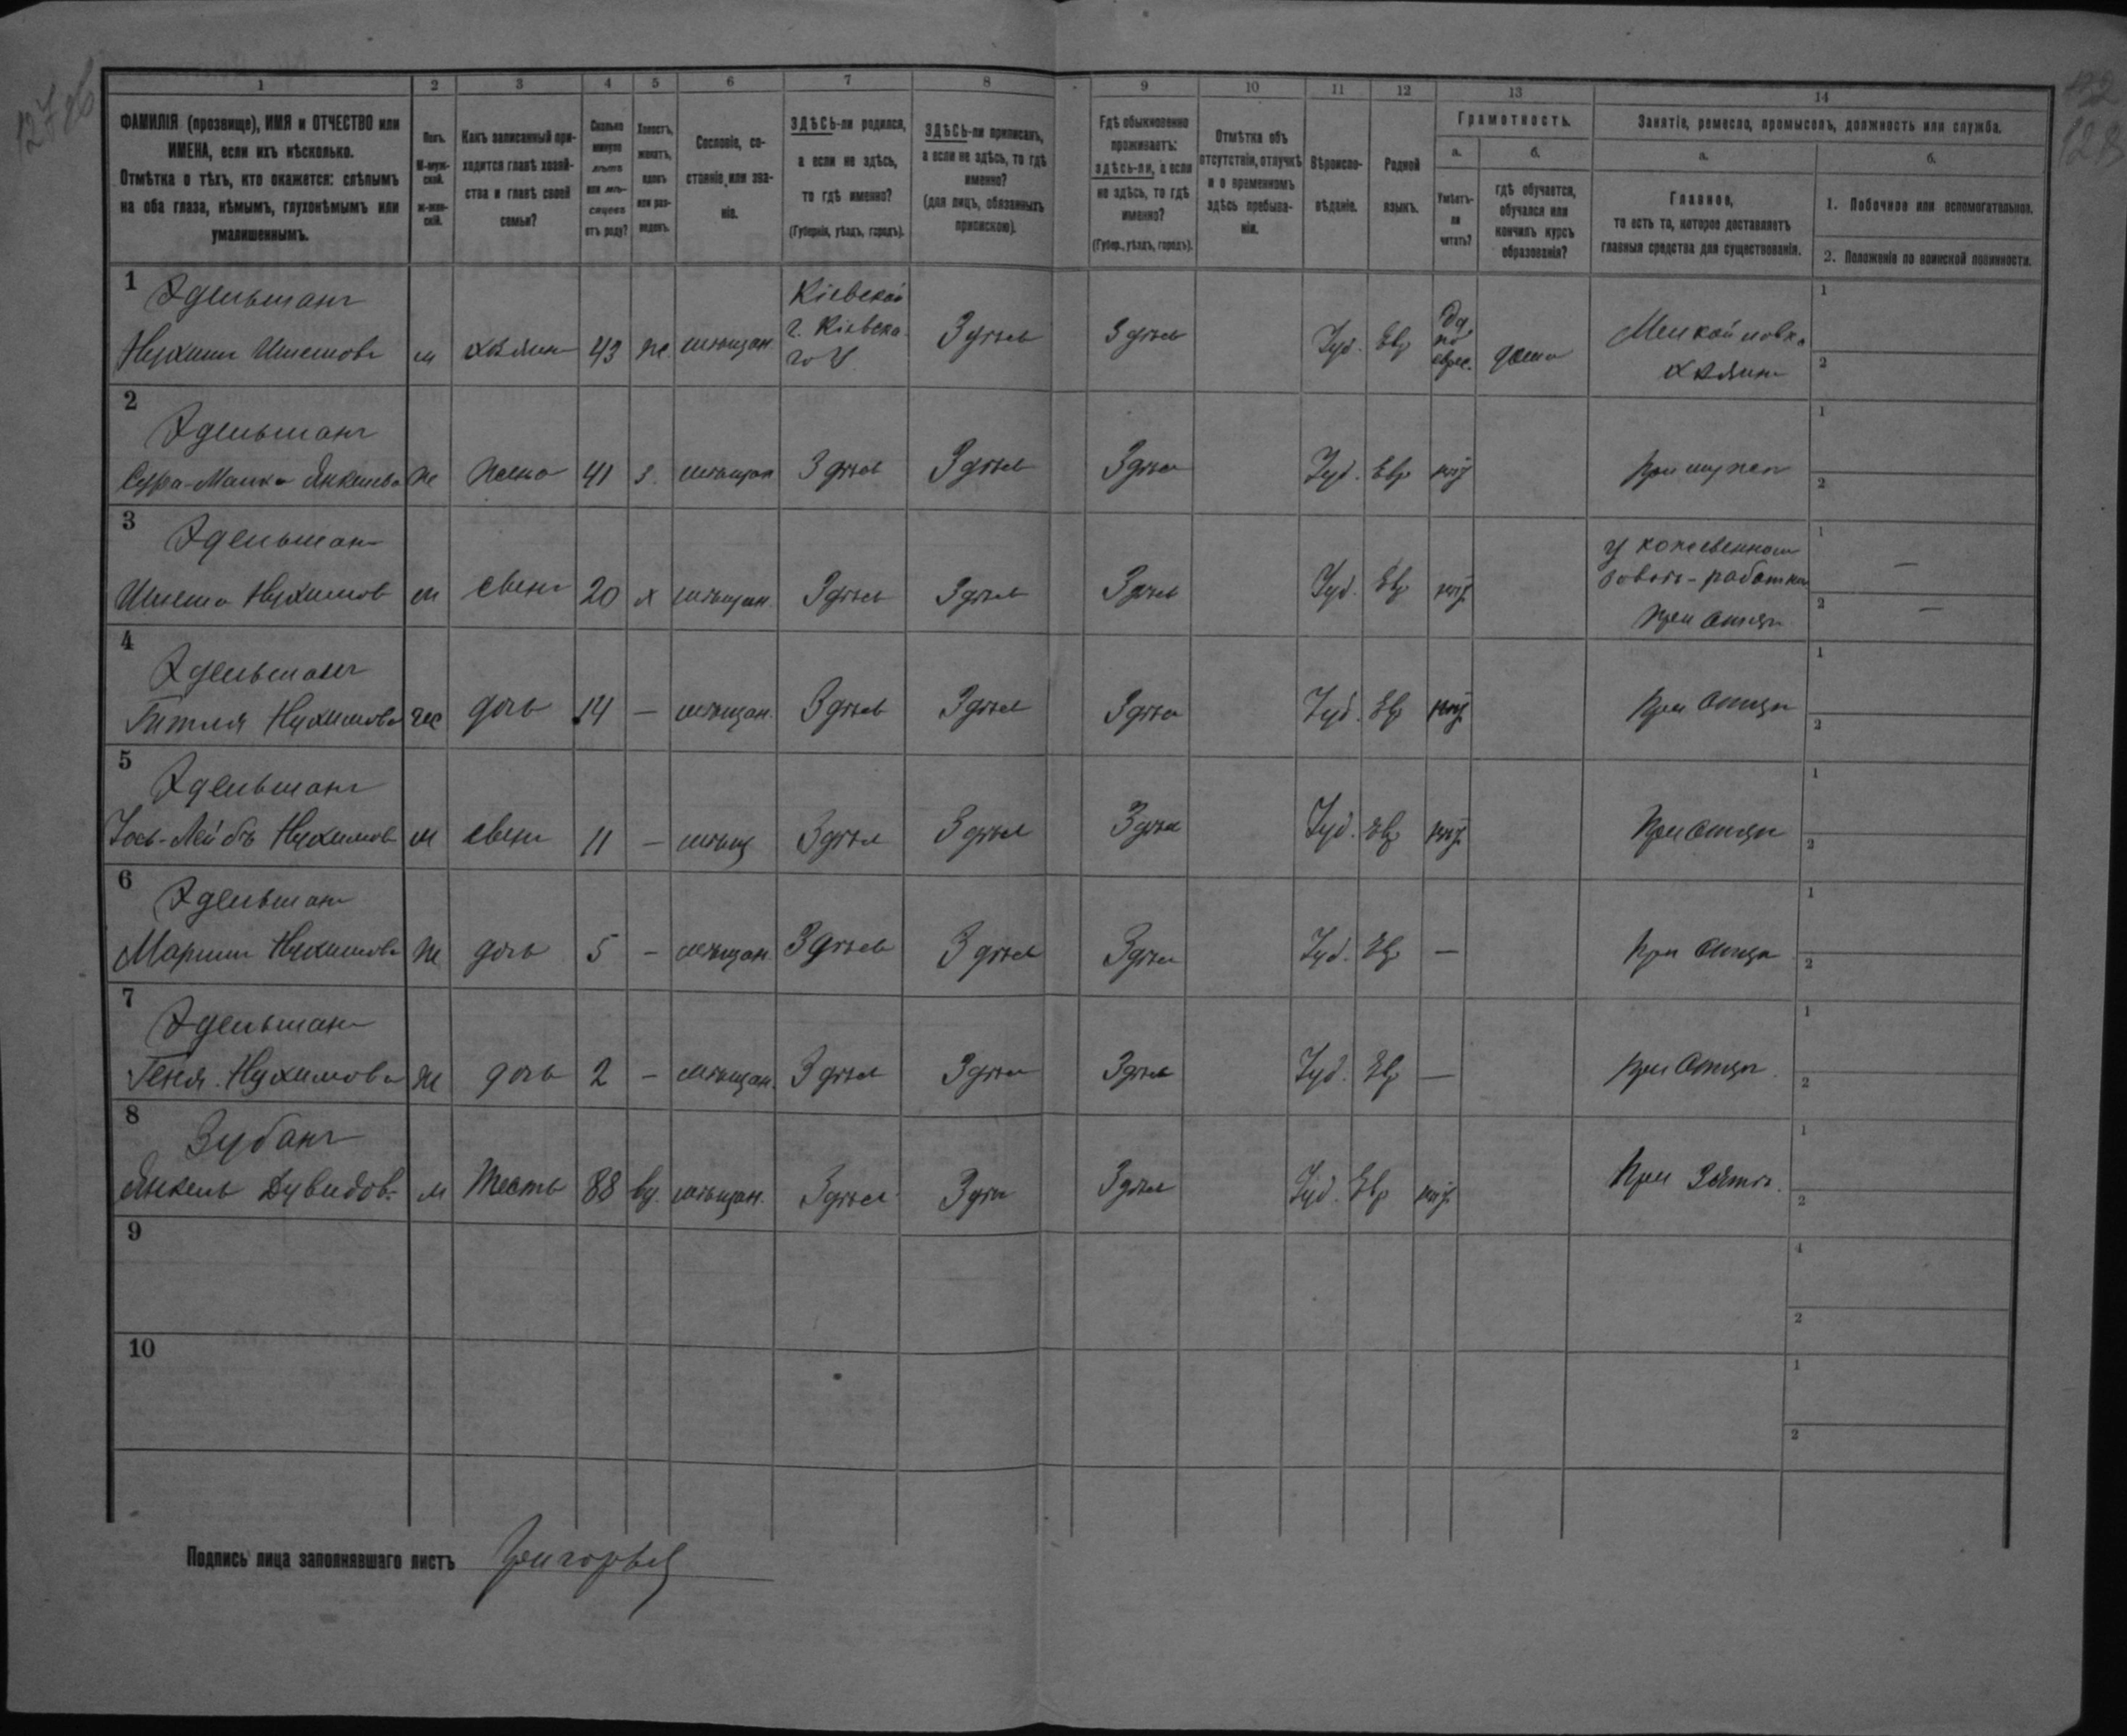 127об
132
128
1 2 3 4 5 6 7 8 9 10 11 12 13 14
ФАМИЛІЯ (прозвище), ИМЯ и ОТЧЕСТВО или
ИМЕНА, если ихъ нѣсколько.
Отмѣтка о тѣхъ, кто окажется: слѣпымъ
на оба глаза, нѣмымъ, глухонѣмымъ или
умалишеннымъ.
Полъ.
М-муж-
ской.
ж-жен-
скій.
Какъ записанный при-
ходится главѣ хозяй-
ства и главѣ своей
семьи?
Сколько
минуло
лѣтъ
или мѣ-
сяцевъ
отъ роду?
Холостъ,
женатъ,
вдовъ
или раз-
веденъ.
Сословіе, со-
стояніе или зва-
ніе.
ЗДѢСЬ-ли родился,
а если не здѣсь,
то гдѣ именно?
(Губернія, уѣздъ, городъ).
ЗДѢСЬ-ли приписанъ,
а если не здѣсь, то гдѣ
именно?
(для лицъ, обязанныхъ
припискою).
Гдѣ обыкновенно
проживаетъ:
здѣсь-ли, а если
не здѣсь, то гдѣ
именно?
(Губер., уѣздъ, городъ).
Отмѣтка объ
отсутствіи, отлучкѣ
и о временномъ
здѣсь пребыва-
ніи.
Вѣроиспо-
вѣданіе.
Родной
языкъ.
Грамотность.
а.
Умѣетъ-
ли
читать?
б.
гдѣ обучается,
обучался или
кончилъ курсъ
образованія?
Занятіе, ремесло, промыселъ, должность или служба.
а.
Главное,
то есть то, которое доставляетъ
главныя средства для существованія.
б.
1. Побочное или вспомогательное.
2. Положеніе по воинской повинности.
1 Эдельманъ
Нухимъ Ишешовъ м хозяинъ 43 ж. мѣщан
Кіевской
г. Кіевска
го У
Здѣсь Здѣсь Іуд. Евр
Да,
по
еврес.
дома
Мелкой
хозяинъ
1
2
2 Эдельманъ
Сура-Малка Янкелева ж жена 41 з. мѣщан Здѣсь Здѣсь Здѣсь Іуд. Евр нѣт при мужѣ
1
2
3 Эдельманъ
Ишешо Нухимов м сынъ 20 х мѣщан. Здѣсь Здѣсь Здѣсь Іуд. Евр нѣт
при отцѣ
1 —
2 —
4 Эдельманъ
Гитля Нухимова ж дочь 14 — мѣщан. Здѣсь Здѣсь Здѣсь Іуд. Евр нѣт при отцѣ
1
2
5 Эдельманъ
Іось-Лейбъ Нухимов м сынъ 11 — мѣщ Здѣсь Здѣсь Здѣсь Іуд. Евр нѣт при отцѣ
1
2
6 Эдельман
Маріем Нухимова ж дочь 5 — мѣщан. Здѣсь Здѣсь Здѣсь Іуд. Евр — при отцѣ
1
2
7 Эдельман
Геня Нухимова ж дочь 2 — мѣщан. Здѣсь Здѣсь Здѣсь Іуд. Евр — при отцѣ
1
2
8 Зубанъ
Янкель Дувидов. м тесть 88 вд. мѣщан. Здѣсь Здѣсь Здѣсь Іуд. Евр нѣт при зятѣ.
1
2
9
1
2
10
1
2
Подпись лица заполнявшаго листъ Григорьев